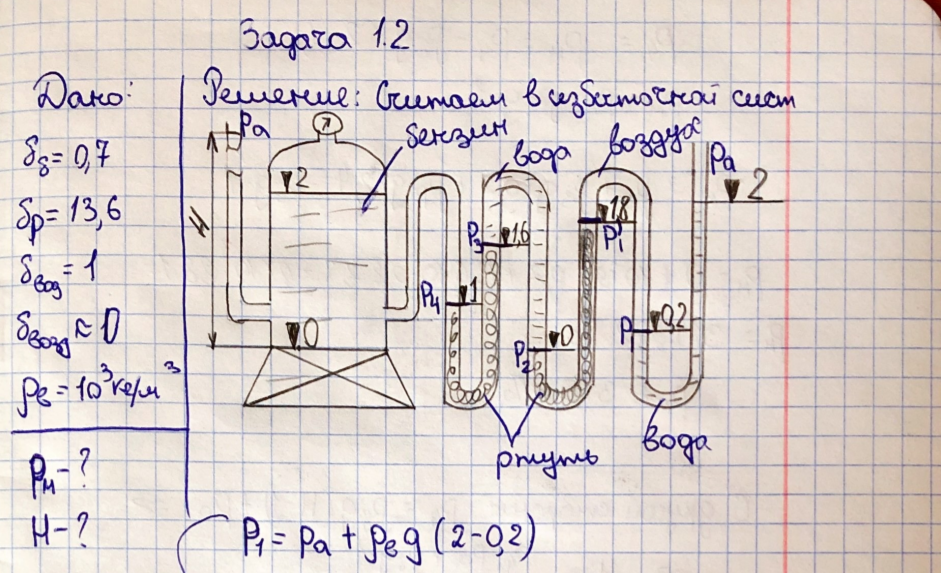 Задача 1.2
Дано:
δб = 0,7
δр = 13,6
δвод = 1
δвозд ≈ 0
ρв = 10³ кг/м³
Pм - ?
H - ?
Решение: Считаем в избыточной сист
Pa
бензин
вода
воздух
Pa
2
2
1,8
P₁'
P₃
1,6
P₄
1
0
P₂
0
P₁
0,2
H
ртуть
вода
P₁ = Pa + ρв g (2-0,2)